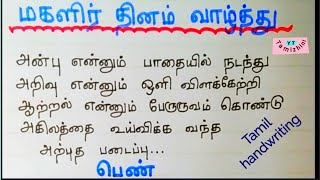 மகளிர் தினம் வாழ்த்து
YT
Tamizhini
அன்பு என்னும் பாதையில் நடந்து
அறிவு என்னும் ஒளி விளக்கேற்றி
ஆற்றல் என்னும் பேருருவம் கொண்டு
அகிலத்தை உய்விக்க வந்த
அற்புத படைப்பு...
பெண்
Tamil
handwriting